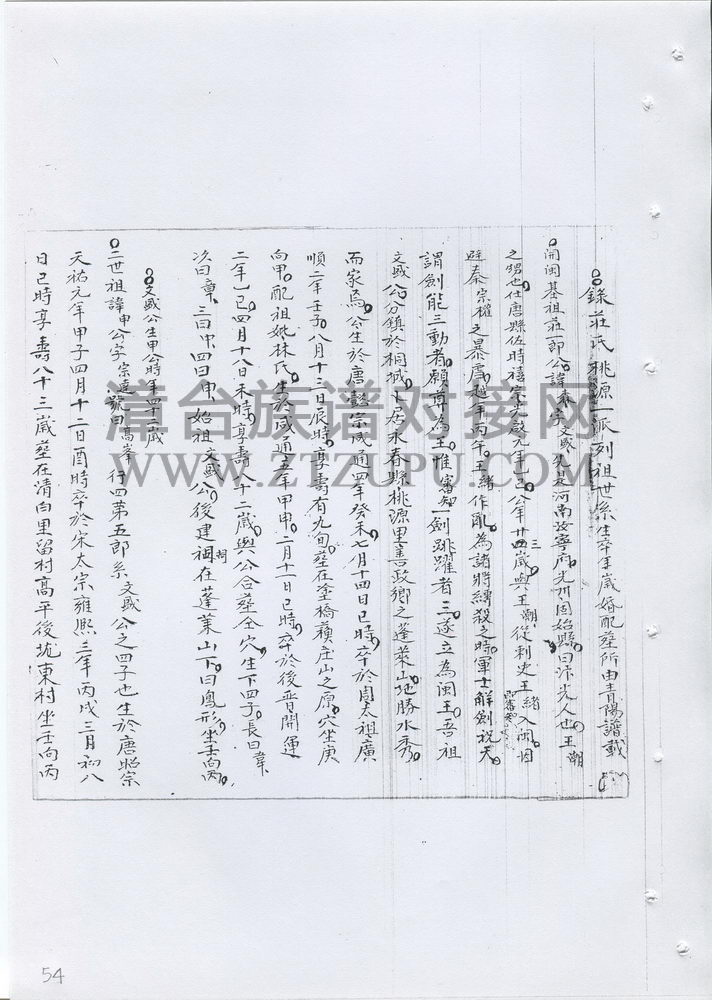 錄莊氏桃源一派列祖世系生卒年歲婚配塟所由青陽譜載
開閩基祖莊一郎公諱森字文盛先是河南汝寧府光州固始縣曰汴光人也王潮
之甥也任唐縣佐時禧宗光啟元年乙巳公年廿四歲與王潮從刺史王緒入閩因
避秦宗權之暴虐越年丙午王緒作亂為諸將縛殺之時軍士解劍祝天
謂劍能三動者願尊為王惟審知一劍跳躍者三遂立為閩王吾祖
文盛公分鎮於桐城卜居永春縣桃源里善政鄉之蓬萊山地勝水秀
而家焉公生於唐懿宗咸通四年癸未七月十四日巳時卒於周太祖廣
順二年壬子八月十三日辰時享壽有九旬塟在塗橋蘋庄山之原穴坐庚
向甲配祖妣林氏生於咸通五年甲申二月十一日巳時卒於後晉開運
二年乙巳四月十八日未時享壽八十二歲與公合塟仝穴生下四子長曰韋
次曰章三曰中四曰申始祖文盛公後建祠在蓬萊山下曰鳳形坐壬向丙
文盛公生申公時年四十二歲
二世祖諱申公字宗遠號曰高峯行四第五郎系文盛公之四子也生於唐昭宗
天祐元年甲子四月十二日酉時卒於宋太宗雍熙三年丙戌三月初八
日巳時享壽八十三歲塟在清白里留村高平後坑東村坐壬向丙
清台族谱对接网
WWW.ZTZUPU.COM
54